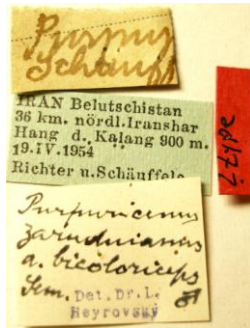 Purpur
Schäuff
IRAN Belutschistan
36 km. nördl.Iranshar
Hang d. Kalang 900 m.
19.IV.1954
Richter u.Schäuffele
Ltype
Purpuricenus
zarudnianus
a. bicoloriceps
Sem. Det. Dr. L.
Heyrovský